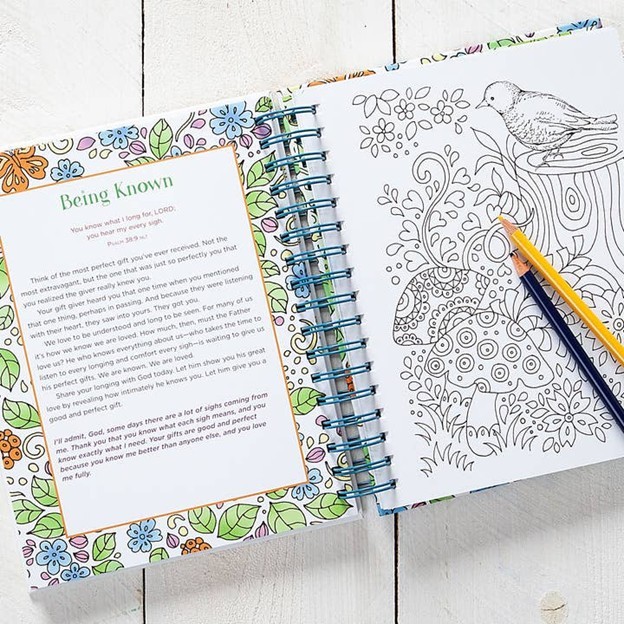 Being Known
You know what I long for, LORD,
you hear my every sigh.
PSALM 38:9 NLT
Think of the most perfect gift you've ever received. Not the
most extravagant, but the one that was just so perfectly you that
you realized the giver really knew you.
Your gift giver heard you that one time when you mentioned
that one thing, perhaps in passing. And because they were listening
with their heart, they saw into yours. They got you.
We love to be understood and long to be seen. For many of us
it's how we know we are loved. How much, then, must the Father
love us? He who knows everything about us—who takes the time to
listen to every longing and comfort every sigh—is waiting to give us
his perfect gifts. We are known. We are loved.
Share your longing with God today. Let him show you his great
love by revealing how intimately he knows you. Let him give you a
good and perfect gift.
I'll admit, God, some days there are a lot of sighs coming from
me. Thank you that you know what each sigh means, and you
know exactly what I need. Your gifts are good and perfect
because you know me better than anyone else, and you love
me fully.